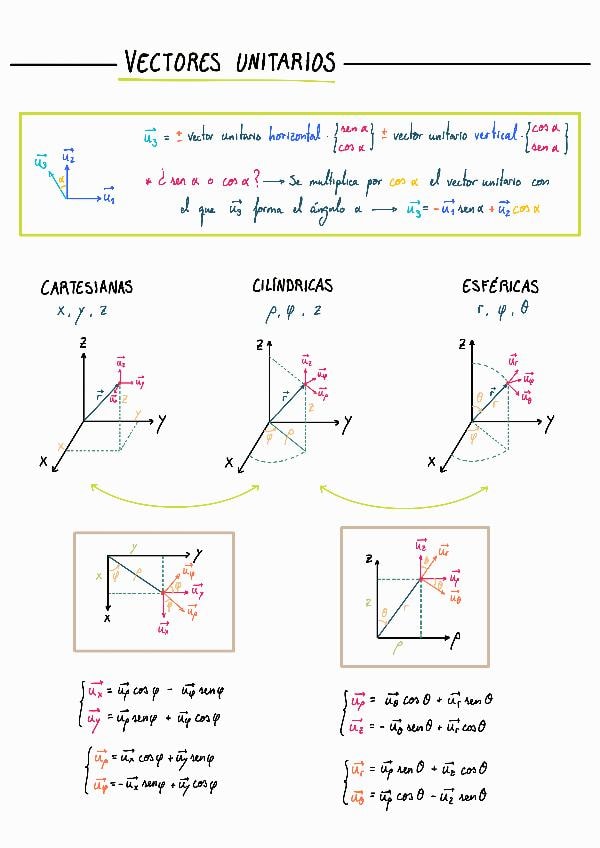 VECTORES UNITARIOS
u₃⃗ = ± vector unitario horizontal · {sen α cos α} ± vector unitario vertical · {cos α sen α}
* ¿sen α o cos α? → Se multiplica por cos α el vector unitario con
el que u₃⃗ forma el ángulo α → u₃⃗ = -u₁⃗ sen α + u₂⃗ cos α
u₃⃗ u₂⃗ α u₁⃗
CARTESIANAS CILÍNDRICAS ESFÉRICAS
x, y, z ρ, φ, z r, φ, θ
z u_z⃗ u_y⃗ u_x⃗ r⃗ z y x Y X
z u_z⃗ u_φ⃗ u_ρ⃗ r⃗ z φ ρ Y X
z u_r⃗ u_φ⃗ u_θ⃗ θ r φ Y X
y Y x φ ρ u_φ⃗ φ u_y⃗ φ u_ρ⃗ u_x⃗ X
z u_z⃗ θ u_r⃗ u_ρ⃗ θ u_θ⃗ z θ r ρ ρ
u_x⃗ = u_ρ⃗ cos φ - u_φ⃗ sen φ
u_y⃗ = u_ρ⃗ sen φ + u_φ⃗ cos φ
u_ρ⃗ = u_x⃗ cos φ + u_y⃗ sen φ
u_φ⃗ = -u_x⃗ sen φ + u_y⃗ cos φ
u_ρ⃗ = u_θ⃗ cos θ + u_r⃗ sen θ
u_z⃗ = -u_θ⃗ sen θ + u_r⃗ cos θ
u_r⃗ = u_ρ⃗ sen θ + u_z⃗ cos θ
u_θ⃗ = u_ρ⃗ cos θ - u_z⃗ sen θ